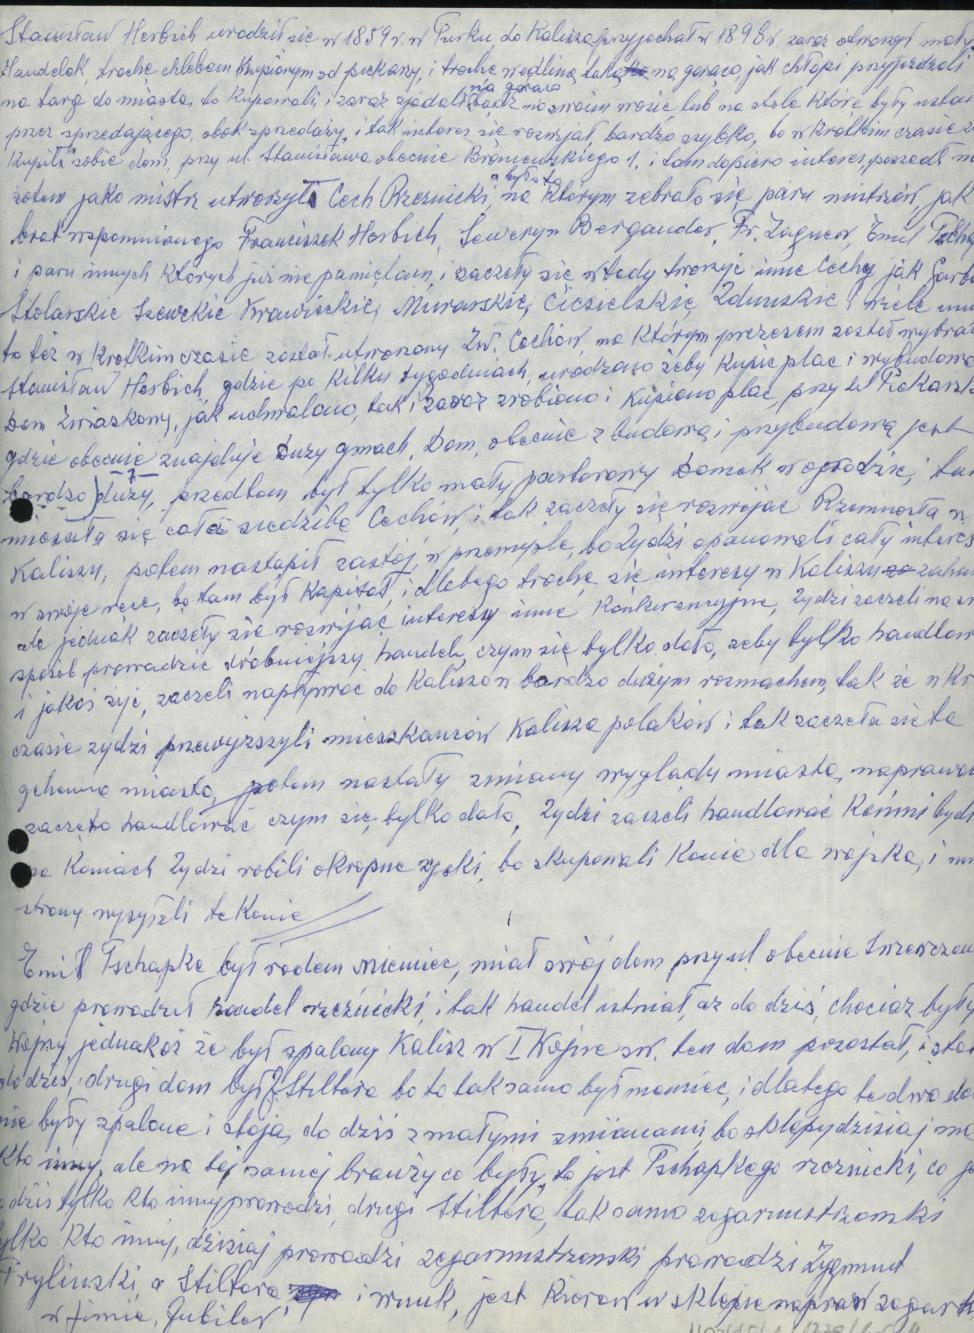 Stanisław Herbich urodził się w 1859 r. w Turku, do Kalisza przyjechał w 1898 r. zaraz otworzył mały
Handelek, trochę chlebem kupionym od piekarzy, i trochę wędliną taką na gorąco, jak chłopi przyjeżdzali
na targ do miasta, to kupowali, i zaraz zjadali na gorąco bądź na swoim wozie lub na stole które były
przez sprzedającego, obok sprzedaży, i tak interes się rozwijał, bardzo szybko, bo w krótkim czasie
kupił sobie dom, przy ul. Stanisława obecnie Broniewskiego 1. i tam dopiero interes, poszedł
potem jako mistrz utworzył Cech Rzeźnicki, a było to na którym zebrało się paru mistrzów, jak
brat wspomnianego Franciszek Herbich, Seweryn Bergander, Fr. Zagner, Emil
i paru innych których już nie pamiętam, i zaczęły się wtedy tworzyć inne Cechy jak
Stolarskie Szewckie Krawieckie, Murarskie, Ciesielskie, Zduńskie i wiele
to też w krótkim czasie został utworzony Zw. Cechów, na którym prezesem został
Stanisław Herbich, gdzie po kilku tygodniach, urodzono żeby kupić plac i
Dom Związkowy, jak uchwalono, tak i zaraz zrobiono i kupiono plac, przy ul
gdzie obecnie znajduje duży gmach, Dom, obecnie z budową i przybudową jest
bardzo) duży, przedtem był tylko mały parterowy Domek w ogrodzie, i
mieściła się cała siedziba Cechów, i tak zaczęły się rozwijać Rzemiosła w
Kaliszu, potem nastąpił zastój w przemyśle, bo Żydzi opanowali cały
w swoje ręce, bo tam był kapitał, i dlatego trochę się interesy w Kaliszu
ale jednak zaczęły się rozwijać interesy inne konkurencyjne, Żydzi zaczeli na
sposób prowadzić drobniejszy handel, czym się tylko dało, żeby tylko
i jakoś żyć, zaczeli napływać do Kalisza w bardzo dużym rozmachem, tak że w
czasie żydzi przewyższyli mieszkańców Kalisza polaków i tak zaczeła się ta
gehenna miasta, potem nastały zmiany wyglądy miasta,
zaczęto handlować czym się tylko dało, Żydzi zaczeli handlować Końmi
na Koniach Żydzi robili okropne zyski, bo skupowali Konie dla wojska, i
strony wysyłali te Konie
Emil Tschapke był rodem niemiec, miał swój dom przy ul obecnie
gdzie prowadził handel rzeźnicki, i tak handel istniał, aż do dziś, chociaż były
Wojny jednakoż że był spalony Kalisz w I Wojne św. ten dom pozostał, i
do dziś, drugi dom był Stillera bo to tak samo był niemiec, i dlatego te dwa
nie były spalone i stoją, do dziś z małymi zmianami, bo sklepy dzisiaj
Kto inny, ale na tej samej branży co były, to jest Tschapkego rzeźnicki, co
dziś tylko kto inny prowadzi, drugi Stillera, tak samo zegarmistrzowski
tylko Kto inny, dzisiaj prowadzi zegarmistrzowski prowadzi Zygmunt
a Stillera i wnuk, jest w sklepie napraw
w firmie, Jubiler